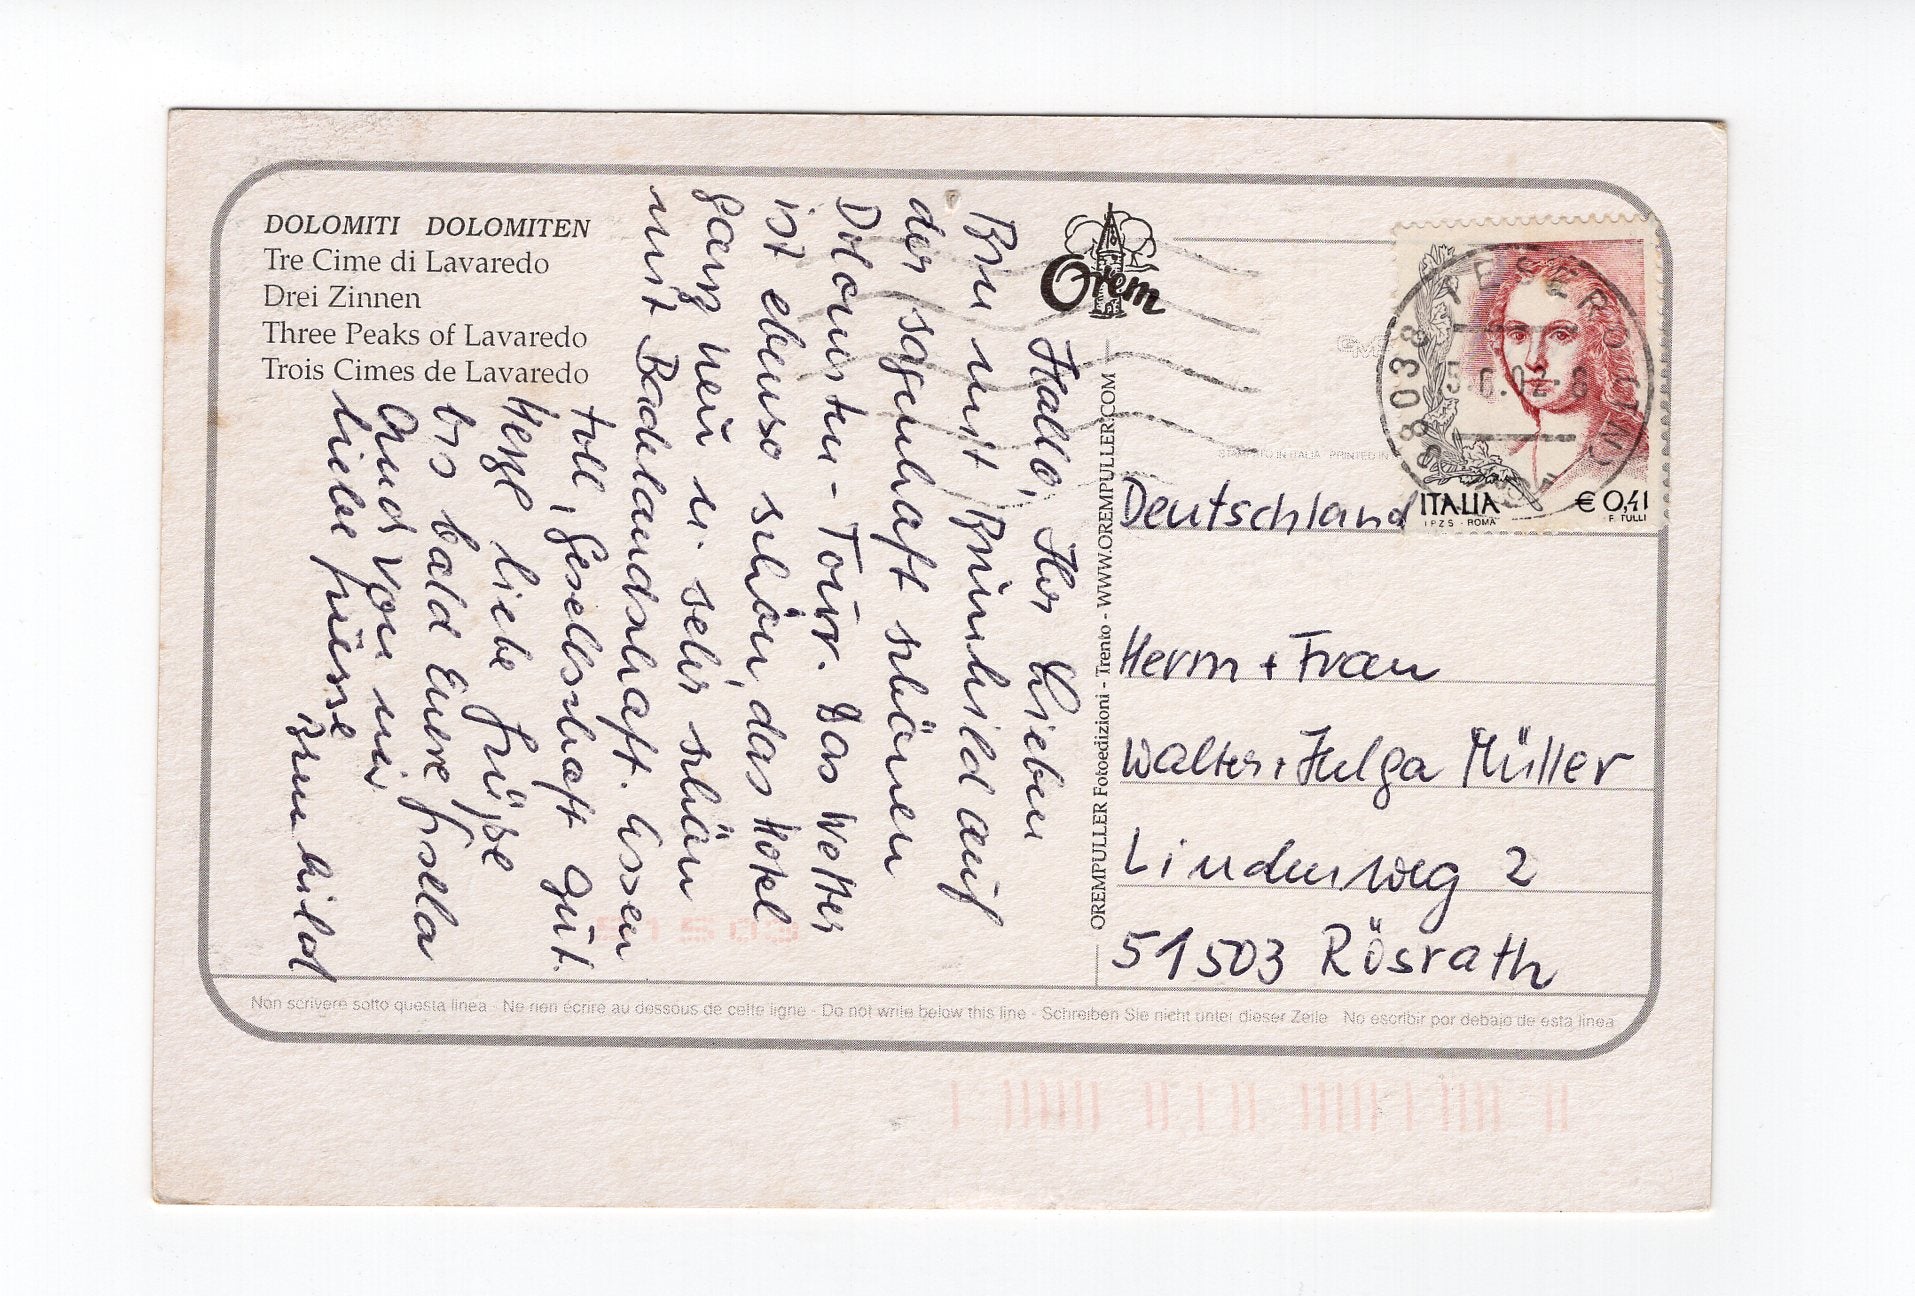 DOLOMITI DOLOMITEN
Tre Cime di Lavaredo
Drei Zinnen
Three Peaks of Lavaredo
Trois Cimes de Lavaredo
Hallo, Ihr Lieben
Bin mit Brunhild auf
der sagenhaft schönen
Dolomiten-Tour. Das Wetter
ist ebenso schön, das Hotel
ganz neu u. sehr schön
mit Badelandschaft. Essen
toll, Gesellschaft gut.
liebe Grüße
bis bald Eure Gisela
Auch von mir
liebe Grüsse
Brunhild
Orem
OREMPULLER Fotoedizioni - Trento - WWW.OREMPULLER.COM
STAMPATO IN ITALIA PRINTED IN
38038 TESERO (TN)
ITALIA € 0,41
I.P.Z.S. - ROMA F. TULLI
Deutschland
Herrn + Frau
Walter + Helga Müller
Lindenweg 2
51503 Rösrath
51503
Non scrivere sotto questa linea - Ne rien écrire au dessous de cette ligne - Do not write below this line - Schreiben Sie nicht unter dieser Zeile No escribir por debajo de esta linea